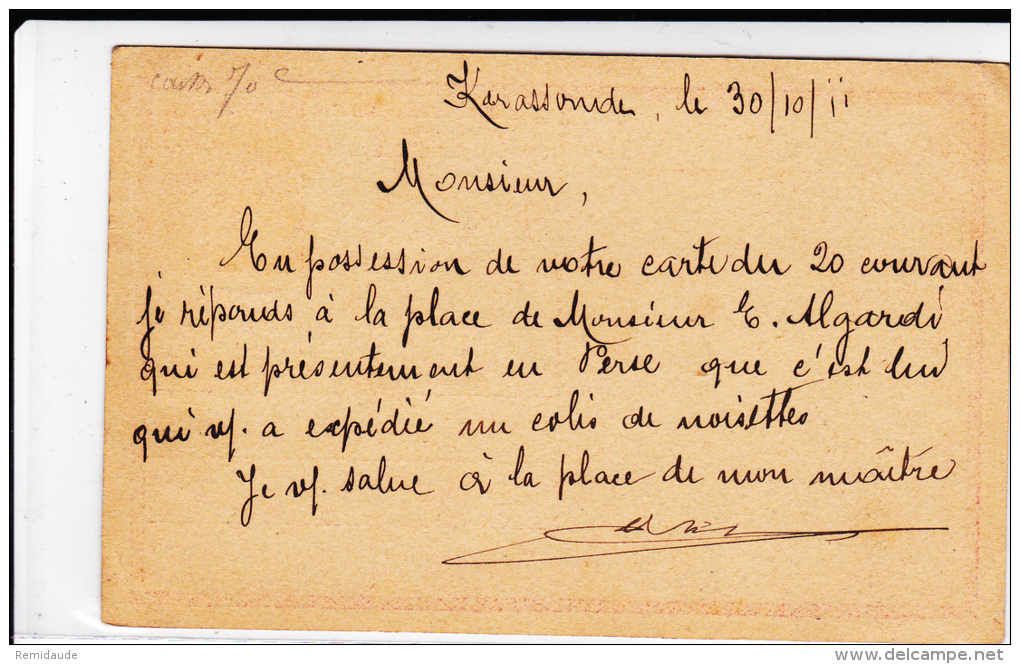 70 c
Kerassonde, le 30/10/11
Monsieur,
En possession de votre carte du 20 courant
je réponds à la place de Monsieur E. Algardi
qui est présentement en Perse que c'est lui
qui vs. a expédié un colis de noisettes
Je vs. salue à la place de mon maître
Remidaude
www.delcampe.net